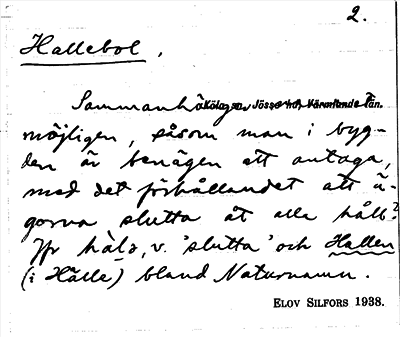 2.
Hallebol.
Sammanhänger Köla sn, Jösse hd, Värmlands län.
möjligen, såsom man i byg-
den är benägen att antaga,
med det förhållandet att ä-
gorna slutta åt alla håll?
Jfr hälá, v. 'slutta' och Hallen
(i Hälle) bland Naturnamn.
ELOV SILFORS 1938.